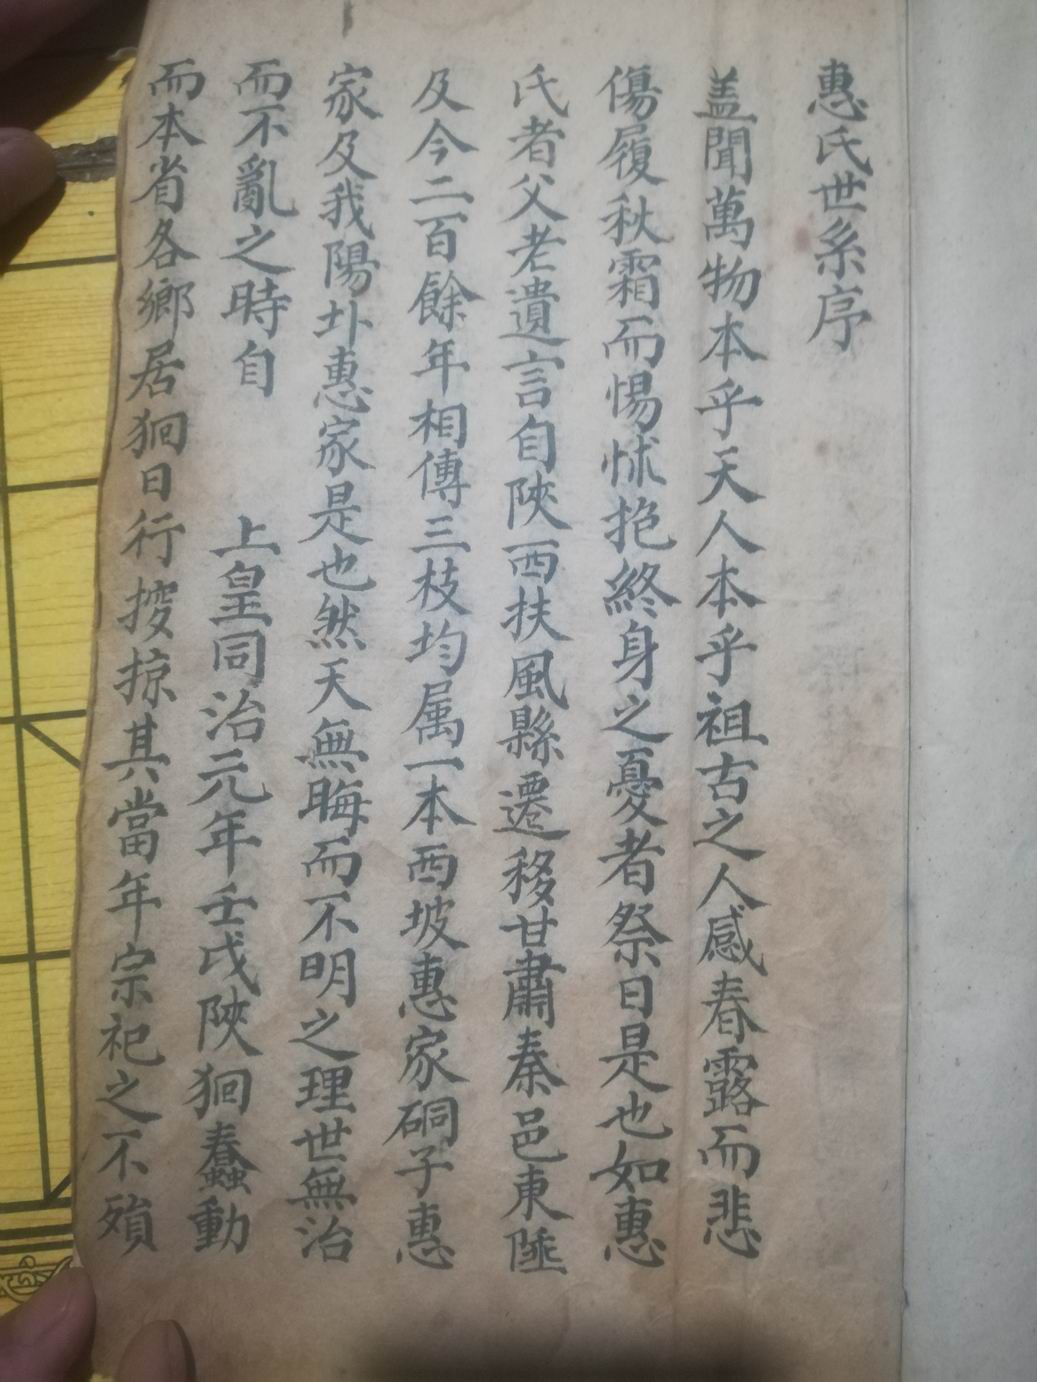 惠氏世系序
盖聞萬物本乎天人本乎祖古之人感春露而悲
傷履秋霜而惕怵抱終身之憂者祭日是也如惠
氏者父老遺言自陝西扶風縣遷移甘肅秦邑東陲
及今二百餘年相傳三枝均属一本西坡惠家硐子惠
家及我陽圤惠家是也然天無晦而不明之理世無治
而不亂之時自 上皇同治元年壬戌陝狪蠢動
而本省各鄉居狪日行摉掠其當年宗祀之不殞